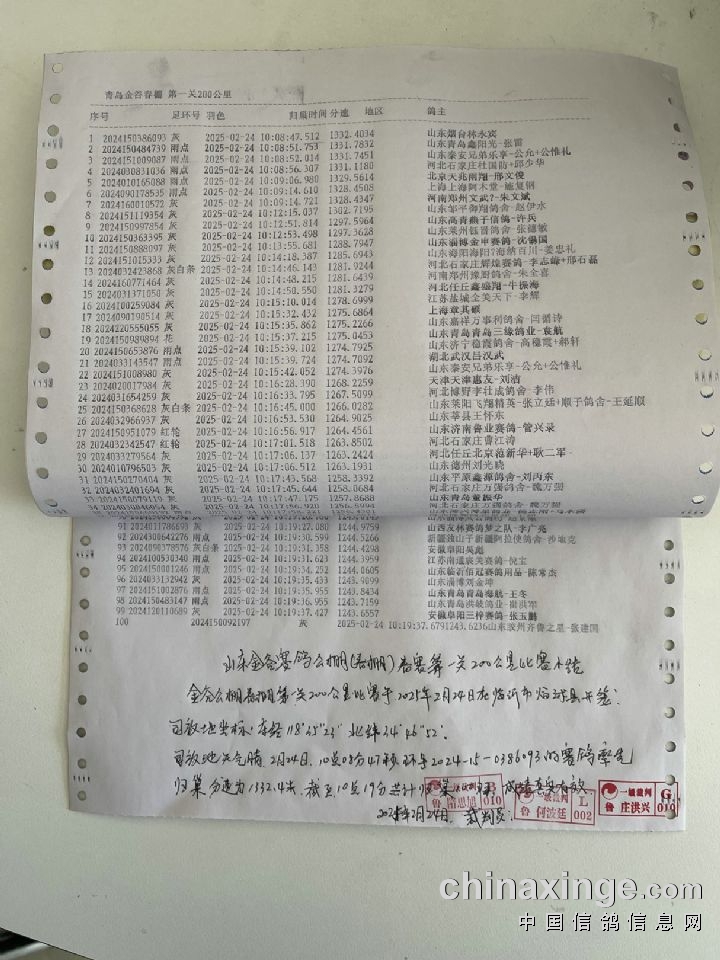 青岛金谷春棚 第一关200公里
序号 足环号 羽色 归巢时间 分速 地区 鸽主
1 2024150386093 灰 2025-02-24 10:08:47.512 1332.4034 山东烟台林永宾
2 2024150484739 雨点 2025-02-24 10:08:51.753 1331.7832 山东青岛鑫阳光-张雷
3 2024151009087 雨点 2025-02-24 10:08:52.014 1331.7451 山东泰安兄弟乐享-公允+公惟礼
4 2024030831036 雨点 2025-02-24 10:08:56.307 1331.1180 河北石家庄杜国防+邱少华
5 2024010165088 雨点 2025-02-24 10:09:06.980 1329.5614 北京天兆雨翔-邢文俊
6 2024090178535 雨点 2025-02-24 10:09:14.610 1328.4508 上海上海阿木堂-施复钢
7 2024160010572 灰 2025-02-24 10:09:14.721 1328.4347 河南郑州文武?-朱文斌
8 2024151119354 灰 2025-02-24 10:12:15.037 1302.7195 山东邹平御翔鸽舍-赵伊水
9 2024150997854 灰 2025-02-24 10:12:51.814 1297.5964 山东高青燕子信鸽-许兵
10 2024150363395 灰 2025-02-24 10:12:53.498 1297.3628 山东莱州钰晋鸽舍-张德敏
11 灰 2025-02-24 10:13:55.681 1288.7947 山东淄博金申赛鸽-沈锡国
12 2024151015333 灰 2025-02-24 10:14:18.387 1285.6943 山东海阳海阳?海纳百川-姜忠礼
13 2024032423868 灰白条 2025-02-24 10:14:46.143 1281.9244 河北石家庄辉煌赛鸽-李志峰+邢石磊
14 2024160771464 灰 2025-02-24 10:14:48.215 1281.6439 河南郑州豫厨鸽舍-朱全喜
15 2024031371050 灰 2025-02-24 10:14:50.550 1281.3279 河北任丘鑫盛翔-牛振海
16 2024100259084 灰 2025-02-24 10:15:10.014 1278.6999 江苏盐城全美天下-李辉
17 2024090190514 灰 2025-02-24 10:15:32.432 1275.6864 上海章其硕
18 2024220555055 灰 2025-02-24 10:15:35.862 1275.2266 山东嘉祥万事利鸽舍-闫循诗
19 2024150989894 花 2025-02-24 10:15:37.215 1275.0453 山东青岛青岛三缘鸽业-袁航
20 2024150653876 雨点 2025-02-24 10:15:39.102 1274.7925 山东济宁稳霞鸽舍-高稳霞+郝轩
21 2024033143547 雨点 2025-02-24 10:15:39.724 1274.7092 湖北武汉吕汉武
22 2024151008980 灰 2025-02-24 10:15:42.052 1274.3976 山东泰安兄弟乐享-公允+公惟礼
23 2024020017984 灰 2025-02-24 10:16:28.390 1268.2259 天津天津惠友-刘洁
24 2024031654259 灰 2025-02-24 10:16:33.795 1267.5099 河北博野李壮成鸽舍-李伟
25 2024150368628 灰白条 2025-02-24 10:16:45.000 1266.0282 山东莱阳飞翔精英-张立廷+顺子鸽舍-王延顺
26 2024032966937 灰 2025-02-24 10:16:53.530 1264.9025 山东莘县王怀东
27 2024150951079 红轮 2025-02-24 10:16:56.917 1264.4561 山东济南鲁业赛鸽-管兴录
28 2024032342547 红轮 2025-02-24 10:17:01.518 1263.8502 河北石家庄曹江涛
29 2024033279564 灰 2025-02-24 10:17:06.137 1263.2424 河北任丘北京范新华+耿二军
30 2024010796503 灰 2025-02-24 10:17:06.212 1263.1931 山东德州刘光晓
31 2024150270404 灰 2025-02-24 10:17:43.568 1258.3392 山东平原鑫源鸽舍-刘丙东
32 2024032401694 灰 2025-02-24 10:17:45.644 1258.0684 河北石家庄万强鸽舍-魏万强
33 灰 2025-02-24 10:17:47.175 1257.8688 山东青岛董振华
91 2024011786693 灰 2025-02-24 10:19:27.080 1244.9759 山西友林赛鸽梦之队-李广亮
92 2024300642276 雨点 2025-02-24 10:19:30.599 1244.5266 新疆独山子新疆阿拉使鸽舍-沙地克
93 2024090378576 灰白条 2025-02-24 10:19:31.358 1244.4298 安徽阜阳吴彪
94 2024100530340 雨点 2025-02-24 10:19:31.623 1244.3959
95 2024150001246 雨点 2025-02-24 10:19:34.250 1244.0605 山东临沂佰冠赛鸽用品-陈常杰
96 2024033132942 灰 2025-02-24 10:19:35.433 1243.9099 山东淄博刘金坤
97 2024151000045 雨点 2025-02-24 10:19:35.955 1243.8434 山东青岛青岛海航-王冬
98 2024150483147 雨点 2025-02-24 10:19:36.955 1243.7159 山东青岛洪岐鸽业-崔洪军
99 2024120110689 灰 2025-02-24 10:19:37.427 1243.6557 安徽阜阳三梓赛鸽-张玉鹏
100 2024150092197 灰 2025-02-24 10:19:37.679 1243.6236 山东胶州齐鲁之星-张建国
山东金谷赛鸽公棚(春棚)春赛第一关200公里比赛小结
金谷公棚春棚第一关200公里比赛于2025年2月24日在临沂市 开笼.
司放地坐标: 东经118°25′23″ 北纬34°46′52″.
司放地天气晴, 2月24日, 10点08分47秒环号2024-15-0386093的赛鸽率先
归巢 分速为1332.4米. 截至10点19分共计归巢 成绩真实有效.
2025年2月24日. 裁判员:
B 010
一级裁判 L
鲁 何波廷 002
一级裁判 G
鲁 庄洪兴 010
chinaxinge.com
中国信鸽信息网